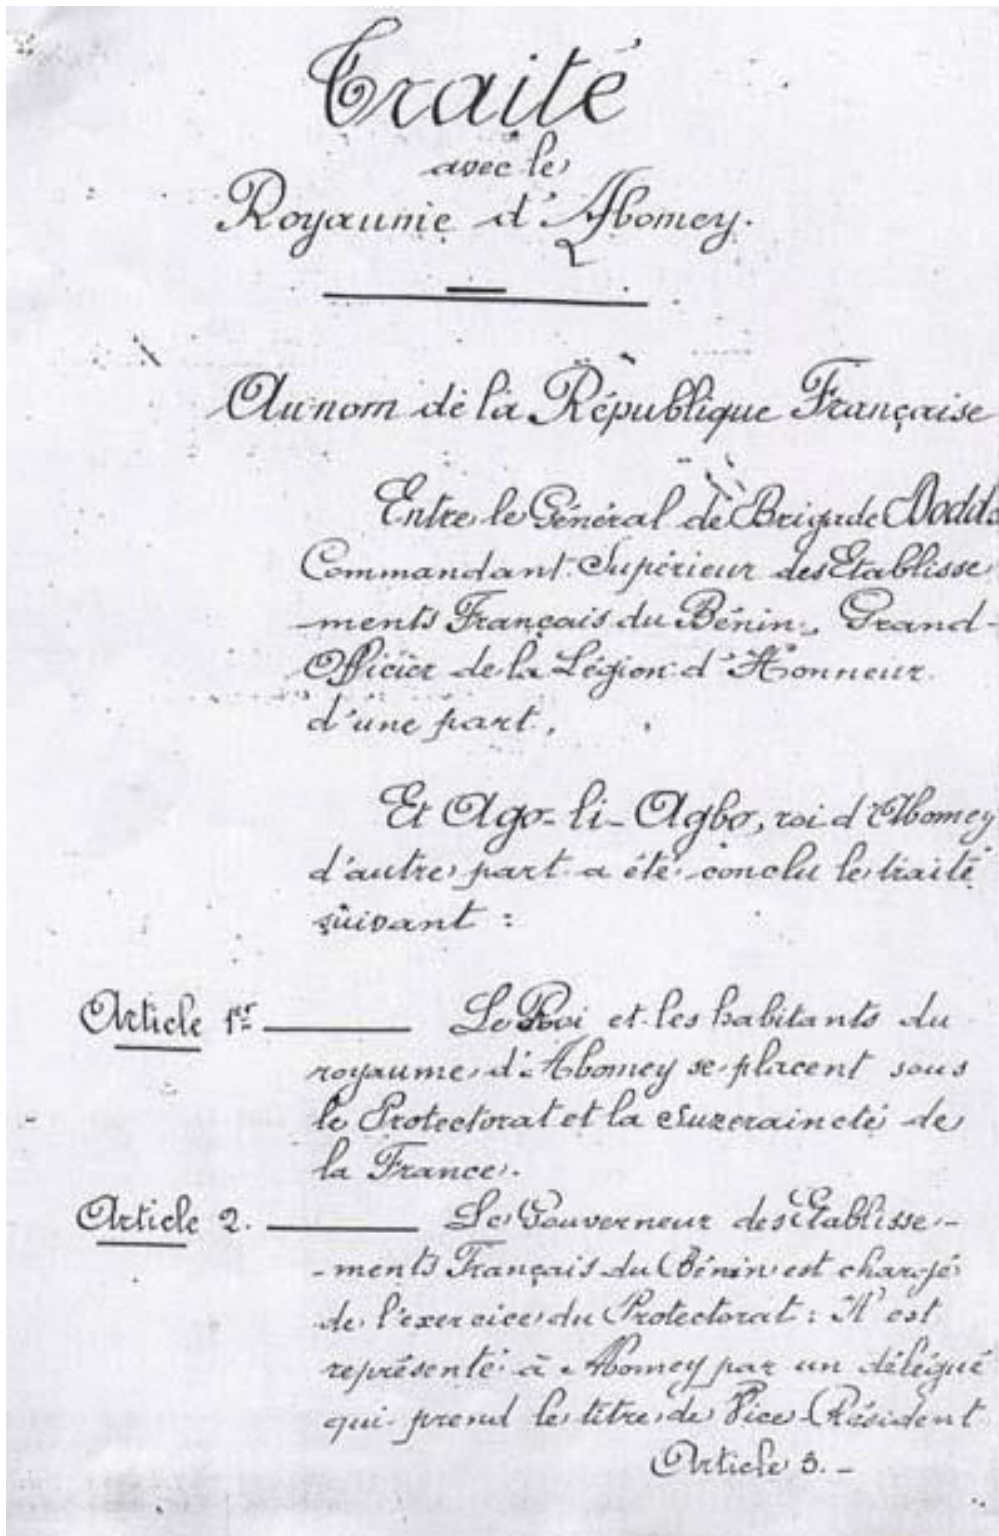 Traité
avec le
Royaume d'Abomey.
Au nom de la République Française
Entre le Général de Brigade Dodds
Commandant Supérieur des Etablisse
-ments Français du Bénin, Grand-
Officier de la Légion d'Honneur
d'une part,
Et Ago-li-Agbo, roi d'Abomey
d'autre part a été conclu le traité
suivant :
Article 1er Le Roi et les habitants du
royaume d'Abomey se placent sous
le Protectorat et la Suzeraineté de
la France.
Article 2. Le Gouverneur des Etablisse-
-ments Français du Bénin est chargé
de l'exercice du Protectorat : Il est
représenté à Abomey par un délégué
qui prend le titre de Vice-Résident
Article 3.-